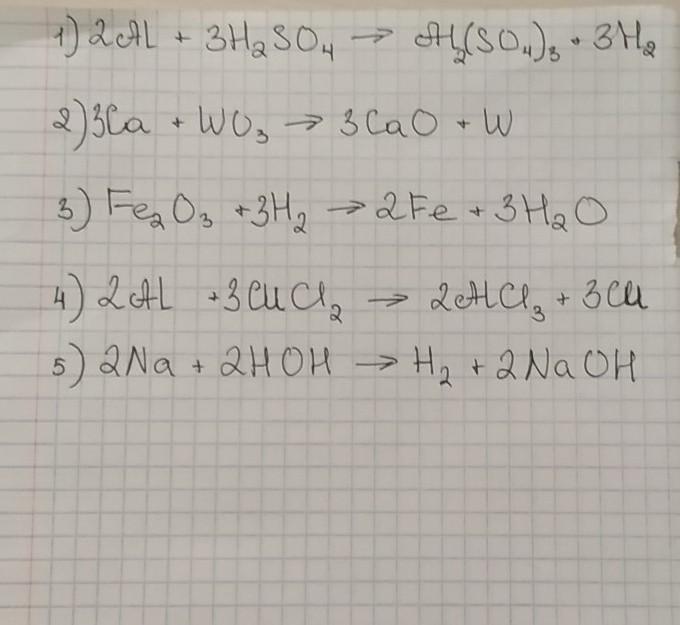 1) 2Al + 3H₂SO₄ → Al₂(SO₄)₃ + 3H₂
2) 3Ca + WO₃ → 3CaO + W
3) Fe₂O₃ + 3H₂ → 2Fe + 3H₂O
4) 2Al + 3CuCl₂ → 2AlCl₃ + 3Cu
5) 2Na + 2HOH → H₂ + 2NaOH